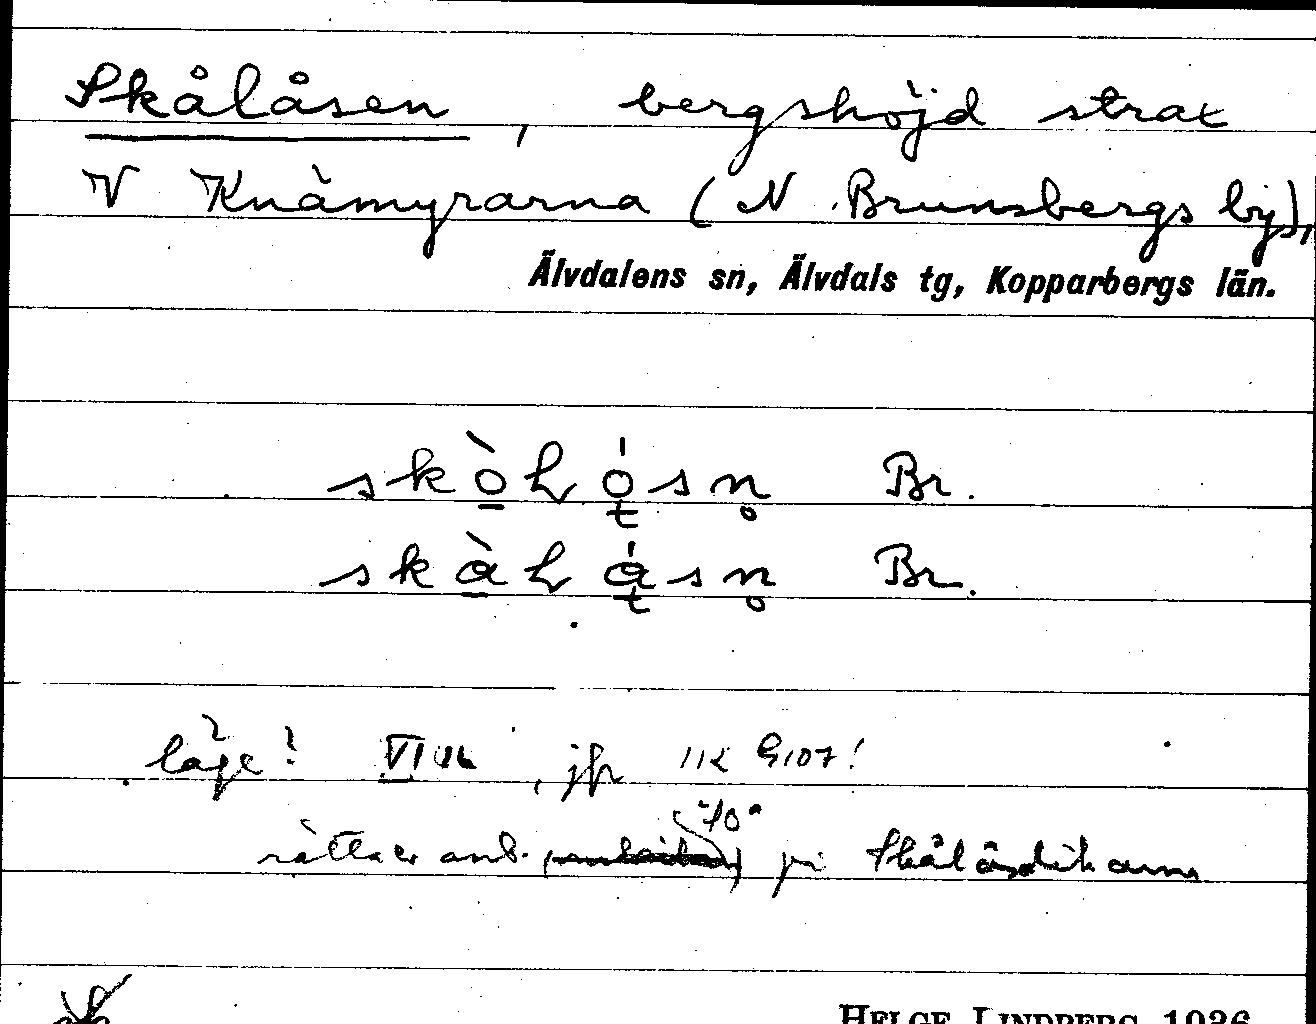 Skålåsen, bergshöjd strax
V Knämyrarna (N Brunsbergs by),
Älvdalens sn, Älvdals tg, Kopparbergs län.
skò̲lọ́sn̥ Br.
skà̲lạ́sn̥ Br.
läge! VI, jfr 112 G107!
rättare anb. på Skålåsdikarna
HELGE LINDBERG 1936